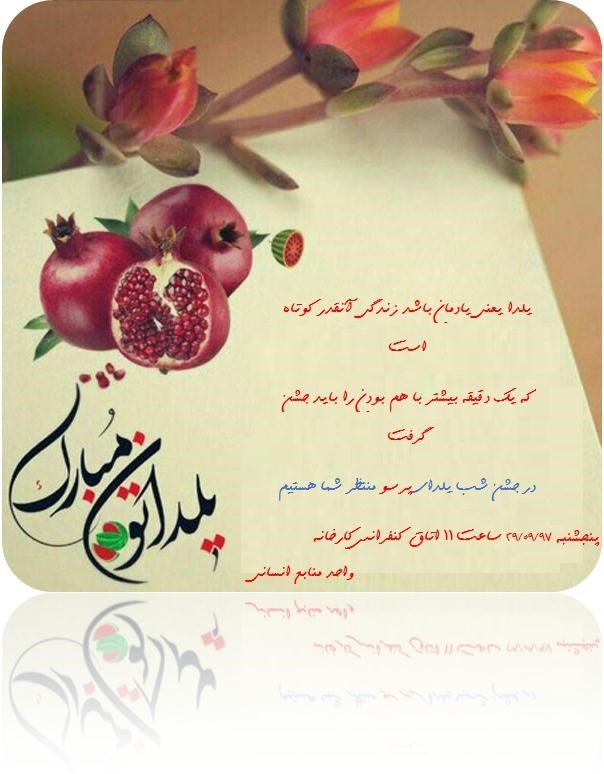 یلدا یعنی یادمان باشد زندگی آنقدر کوتاه
است
که یک دقیقه بیشتر با هم بودن را باید جشن
گرفت
در جشن شب یلدای پرسو منتظر شما هستیم
پنجشنبه ۲۹/۰۹/۹۷ ساعت ۱۱ اتاق کنفرانس کارخانه
واحد منابع انسانی
یلداتون مبارک